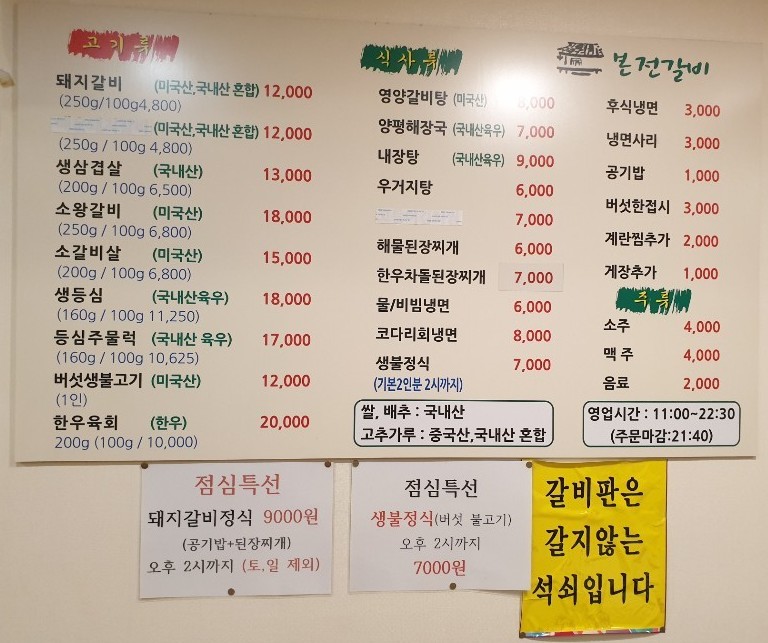 고기류
돼지갈비 (미국산,국내산 혼합) 12,000
(250g/100g4,800)
(미국산,국내산 혼합) 12,000
(250g / 100g 4,800)
생삼겹살 (국내산) 13,000
(200g / 100g 6,500)
소왕갈비 (미국산) 18,000
(250g / 100g 6,800)
소갈비살 (미국산) 15,000
(200g / 100g 6,800)
생등심 (국내산육우) 18,000
(160g / 100g 11,250)
등심주물럭 (국내산 육우) 17,000
(160g / 100g 10,625)
버섯생불고기 (미국산) 12,000
(1인)
한우육회 (한우) 20,000
200g (100g / 10,000)
식사류
영양갈비탕 (미국산) 8,000
양평해장국 (국내산육우) 7,000
내장탕 (국내산육우) 9,000
우거지탕 6,000
7,000
해물된장찌개 6,000
한우차돌된장찌개 7,000
물/비빔냉면 6,000
코다리회냉면 8,000
생불정식 7,000
(기본2인분 2시까지)
쌀, 배추 : 국내산
고추가루 : 중국산,국내산 혼합
본전갈비
후식냉면 3,000
냉면사리 3,000
공기밥 1,000
버섯한접시 3,000
계란찜추가 2,000
게장추가 1,000
주류
소주 4,000
맥주 4,000
음료 2,000
영업시간 : 11:00~22:30
(주문마감:21:40)
점심특선
돼지갈비정식 9000원
(공기밥+된장찌개)
오후 2시까지 (토,일 제외)
점심특선
생불정식(버섯 불고기)
오후 2시까지
7000원
갈비판은
갈지않는
석쇠입니다